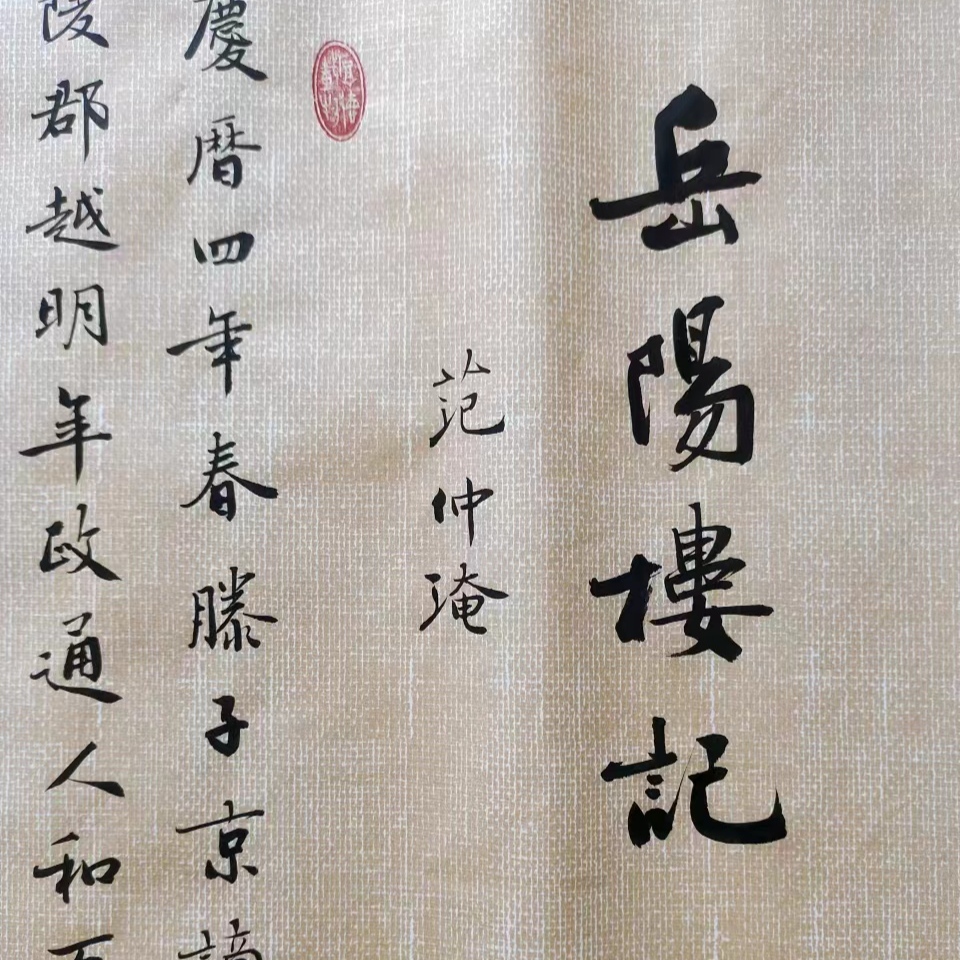 岳陽樓記
范仲淹
慶曆四年春滕子京謫
陵郡越明年政通人和百